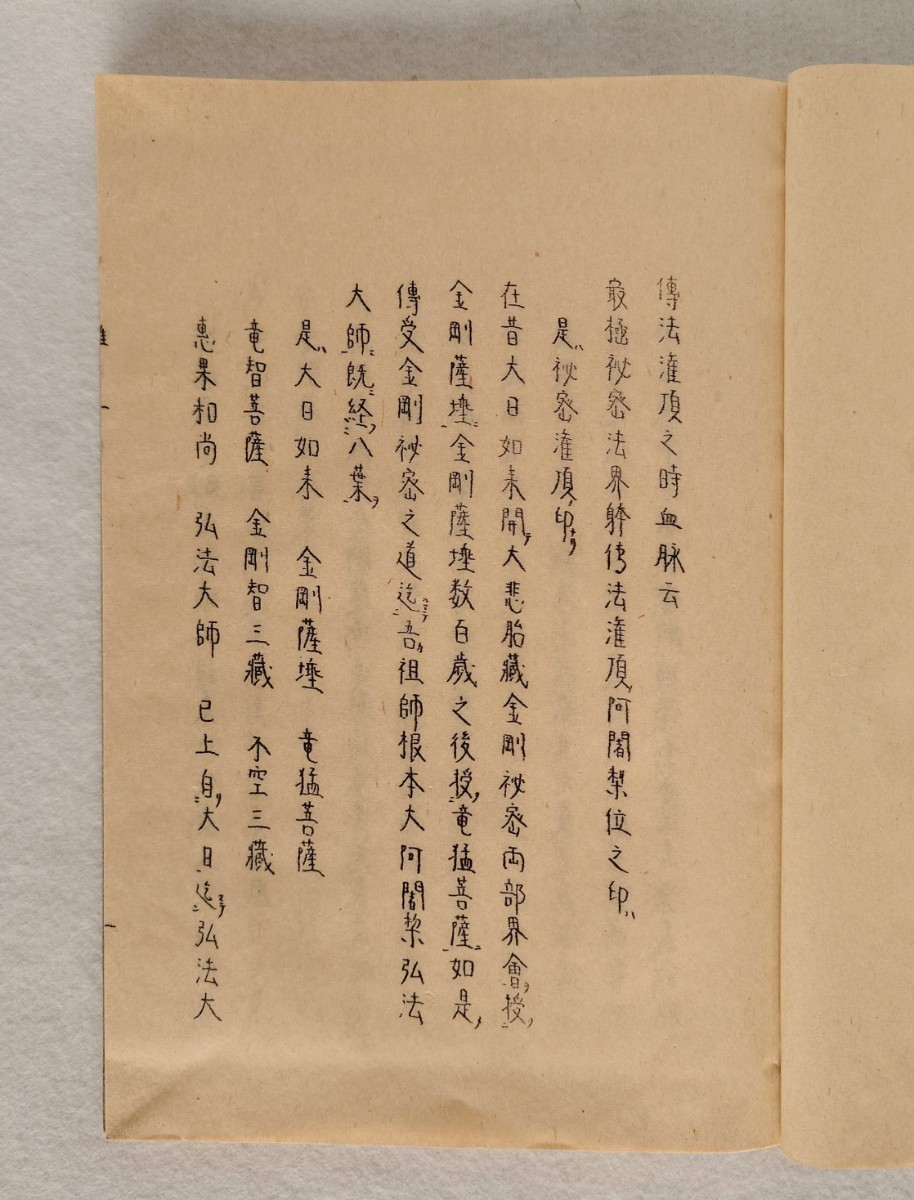 傳法潅頂之時血脉云
最極祕密法界躰傳法潅頂阿闍梨位之印ハ
是ハ祕密潅頂ノ印ナリ
在昔大日如来開テ大悲胎藏金剛祕密両部界會ヲ授ク
金剛薩埵ニ金剛薩埵数百歳之後授ク竜猛菩薩ニ如是ク
傳受金剛祕密之道迄吾カ祖師根本大阿闍梨弘法
大師ニ既ニ経タリ八葉ヲ
是ハ大日如来　金剛薩埵　竜猛菩薩
竜智菩薩　金剛智三藏　不空三藏
惠果和尚　弘法大師　已上自リ大日迄マテ弘法大